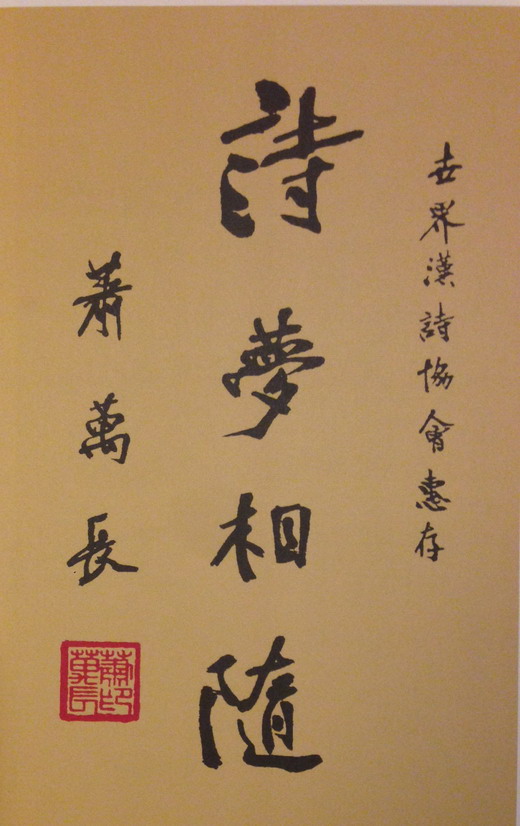 世界漢詩協會惠存
詩夢相隨
蕭萬長
蕭印萬長